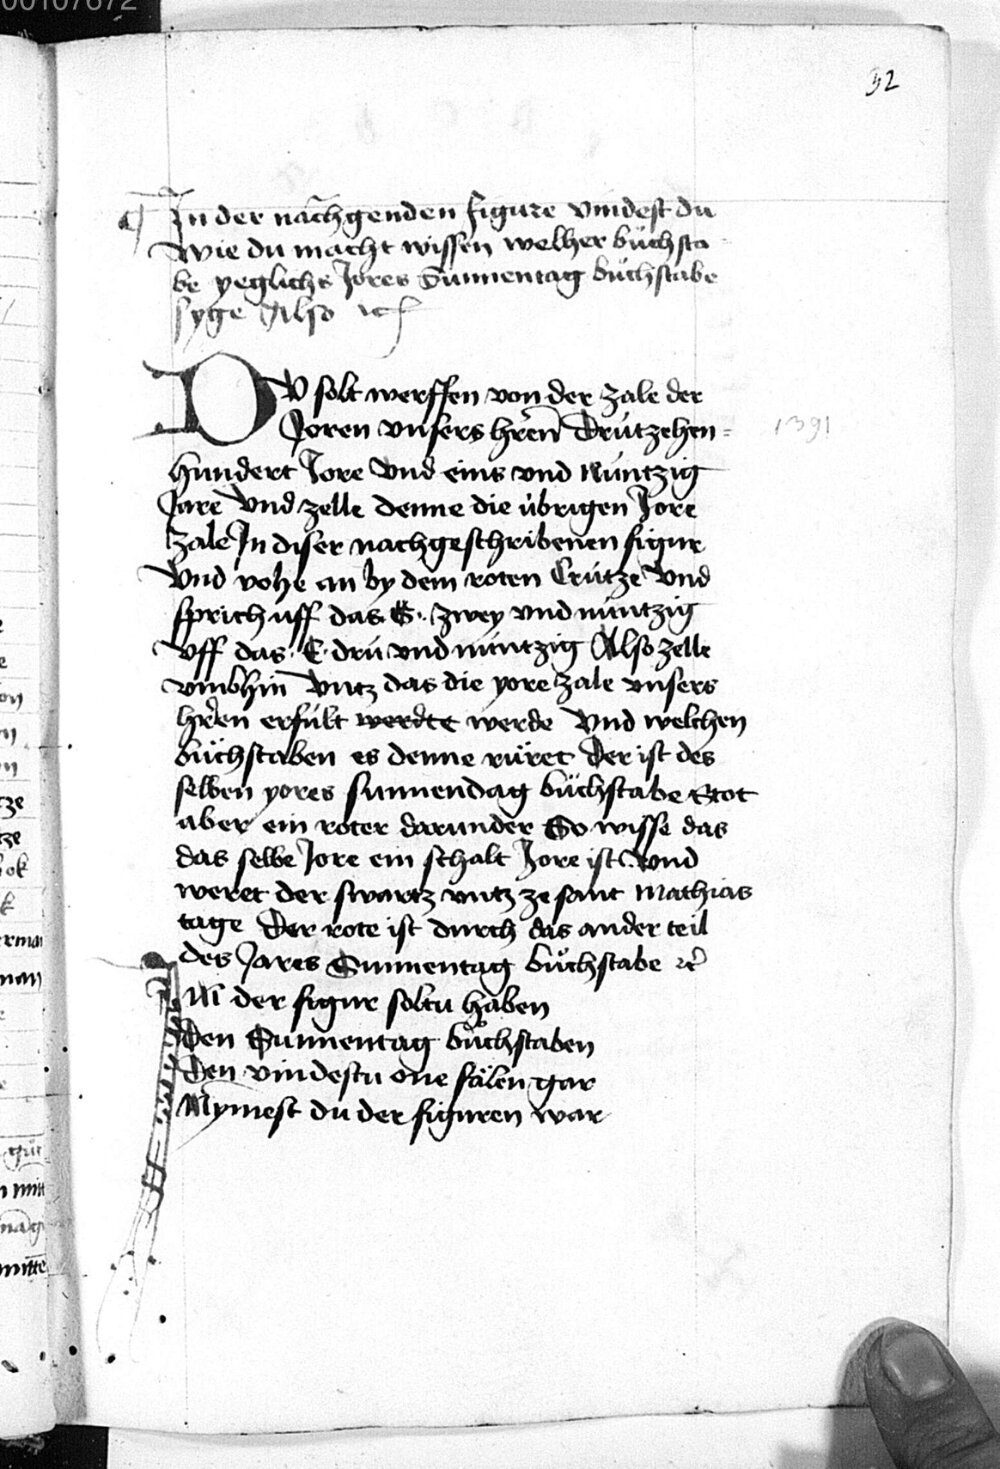 00107672
32
In der nachgenden figure vindest du
wie du macht wissen welher buͦchsta
be yeglichs Jores Sunnentag buͦchstabe
syge Also etc
DV solt werffen von der zale der
Joren vnsers hr̄en Drützehen=
1391
hundert Jore vnd eins vnd Nüntzig
Jare vnd zelle denne die übrigen Jore
zale In diser nachgeschribenen figur
vnd vohe an by dem roten Crütze vnd
sprich uff das G. zwey vnd nüntzig
vff das E drü vnd nüntzig Also zelle
vmbhin vntz das die yore zale vnsers
hr̄en erfült werdte werde vnd welchen
buͦchstaben es denne rüret Der ist des
selben yores sunnendag buͦchstabe Stot
aber ein roter darunder So wisse das
das selbe Jore ein schalt Jore ist vnd
weret der swartz vntz ze sant Mathias
tage Der rote ist durch das ander teil
des Jares Sunnentag buͦchstabe etc
der figur soltu haben
Den Sunnentag buͦchstaben
Den vindestu one fälen gar
Nymest du der figuren war